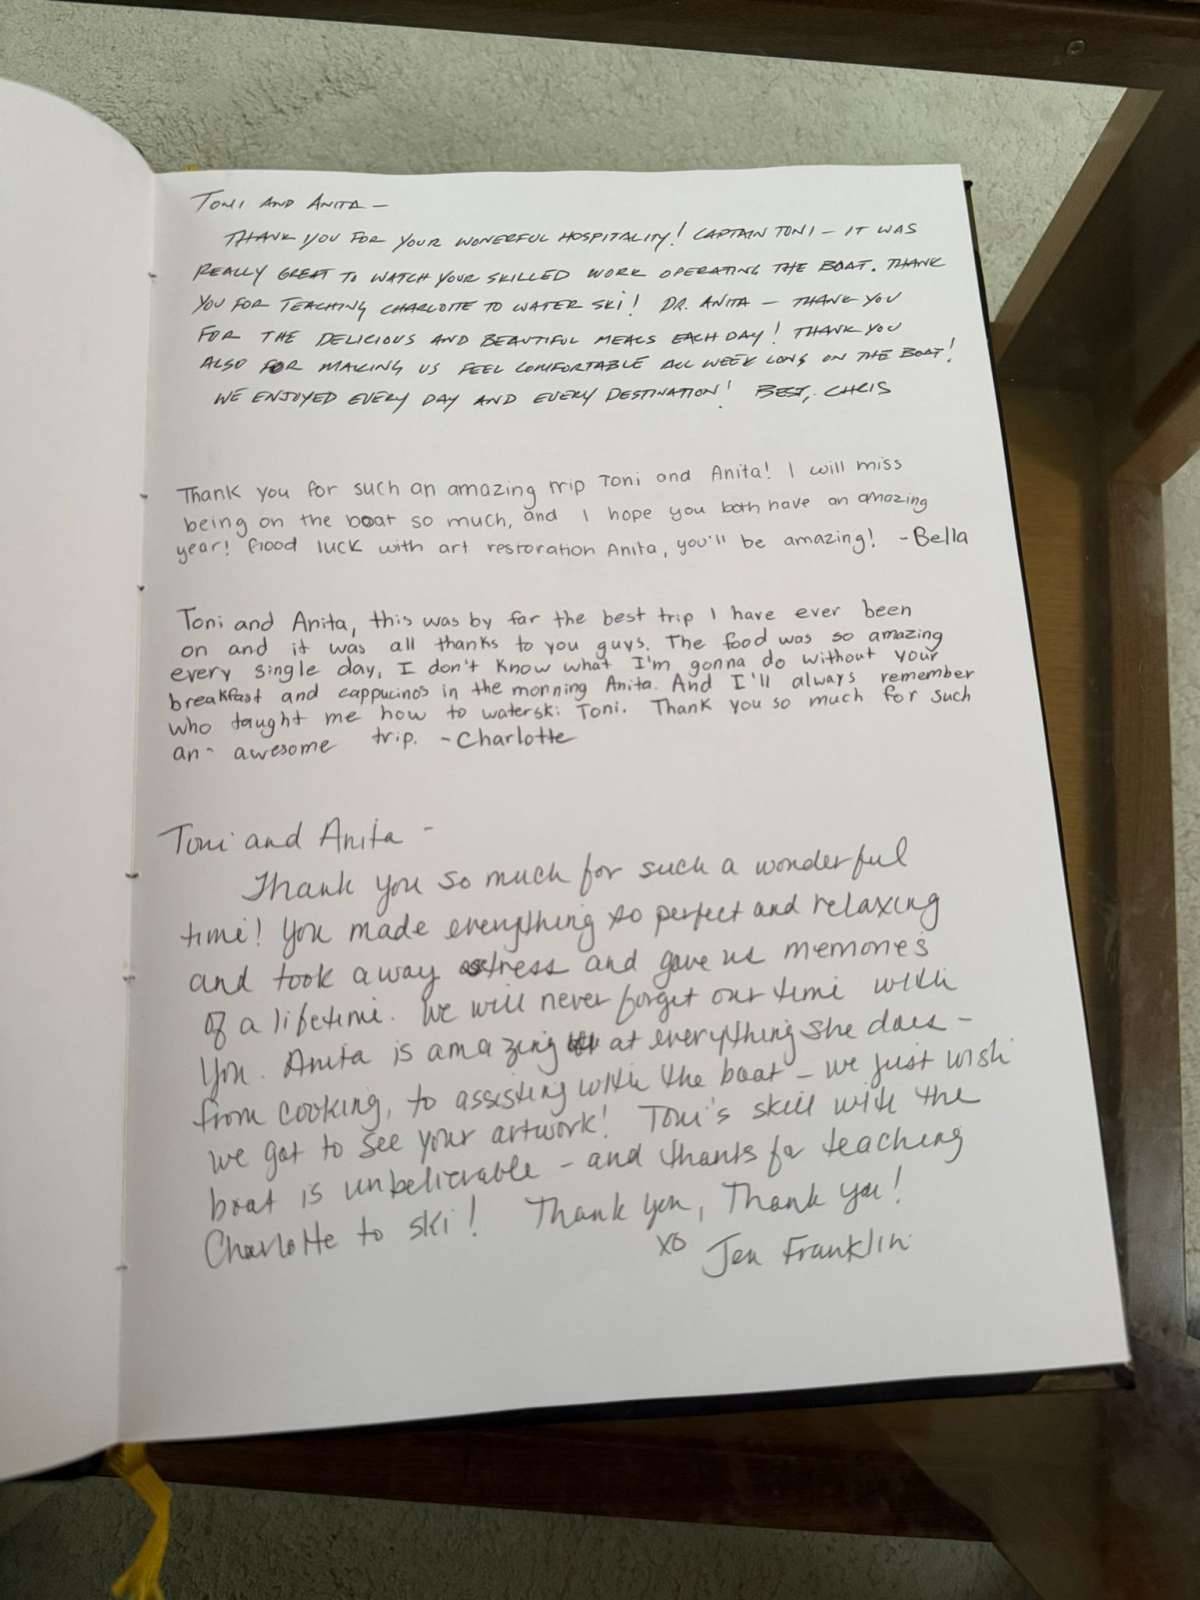 TONI AND ANITA –
THANK YOU FOR YOUR WONERFUL HOSPITALITY! CAPTAIN TONI – IT WAS
REALLY GREAT TO WATCH YOUR SKILLED WORK OPERATING THE BOAT. THANK
YOU FOR TEACHING CHARLOTTE TO WATER SKI! DR. ANITA – THANK YOU
FOR THE DELICIOUS AND BEAUTIFUL MEALS EACH DAY! THANK YOU
ALSO FOR MAKING US FEEL COMFORTABLE ALL WEEK LONG ON THE BOAT!
WE ENJOYED EVERY DAY AND EVERY DESTINATION! BEST, CHRIS
Thank you for such an amazing trip Toni and Anita! I will miss
being on the boat so much, and I hope you both have an amazing
year! Good luck with art restoration Anita, you'll be amazing! -Bella
Toni and Anita, this was by far the best trip I have ever been
on and it was all thanks to you guys. The food was so amazing
every single day, I don't know what I'm gonna do without your
breakfast and cappucinos in the morning Anita. And I'll always remember
who taught me how to waterski Toni. Thank you so much for such
an awesome trip. -Charlotte
Toni and Anita -
Thank you so much for such a wonderful
time! You made everything so perfect and relaxing
and took away stress and gave us memories
of a lifetime. We will never forget our time with
you. Anita is amazing at everything she does -
from cooking, to assisting with the boat - we just wish
we got to see your artwork! Toni's skill with the
boat is unbelievable - and thanks for teaching
Charlotte to ski! Thank you, Thank you!
xo Jen Franklin